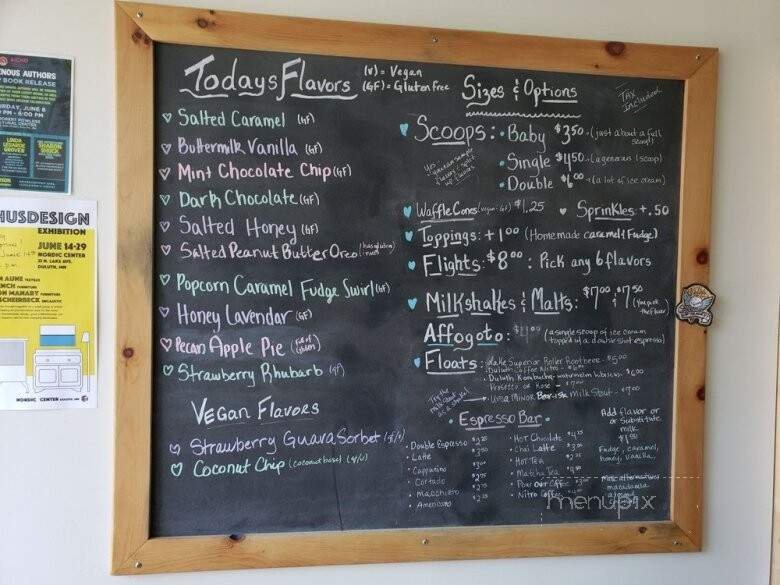 AICHO
ENOUS AUTHORS
BOOK RELEASE
RDAY, JUNE 8
PM - 6:00 PM
LINDA
LEGARDE
GROVER
HUSDESIGN
EXHIBITION
JUNE 14-29
NORDIC CENTER
23 N. LAKE AVE.
DULUTH, MN
NORDIC CENTER
Todays Flavors
(V) = Vegan
(GF) = Gluten free
Salted Caramel (GF)
Buttermilk Vanilla (GF)
Mint Chocolate Chip (GF)
Dark Chocolate (GF)
Salted Honey (GF)
Salted Peanut Butter Oreo (has gluten & nuts)
Popcorn Caramel Fudge Swirl (GF)
Honey Lavendar (GF)
Pecan Apple Pie (full of gluten)
Strawberry Rhubarb (gf)
Vegan Flavors
Strawberry Guava Sorbet (gf/v)
Coconut Chip (coconut base) (gf/v)
Sizes & Options
TAX
included
Scoops: • Baby $3.50 (just about a full scoop!)
• Single $4.50 (a generous 1 scoop)
• Double $6.00 (a lot of ice cream)
Waffle Cones (vegan & GF) $1.25
Sprinkles: +.50
Toppings: + 1.00 (Homemade caramel & Fudge)
Flights: $8.00 : Pick any 6 flavors
Milkshakes & Malts: $7.00 & $7.50 (you pick the flavor)
Affogoto: (a single scoop of ice cream
topped w/ a double shot espresso)
Floats: • Lake Superior Roller Rootbeer $5.00
• Duluth Coffee Nitro - $6.00
• Duluth Kombucha - watermelon hibiscus $6.00
• Prosecco or Rosé - $7.00
• Ursa Minor Bear-ish Milk Stout - $7.00
Espresso Bar
• Double Espresso
• Latte
• Cappucino
• Cortado
• Macchiato
• Americano
• Hot Chocolate
• Chai Latte
• Hot Tea
• Matcha Tea
• Pour over Coffee
• Nitro Coffee
Add flavor or
or Substitute
milk
Fudge, caramel,
honey, vanilla
Milk alternatives
macadamia
almond
menupix